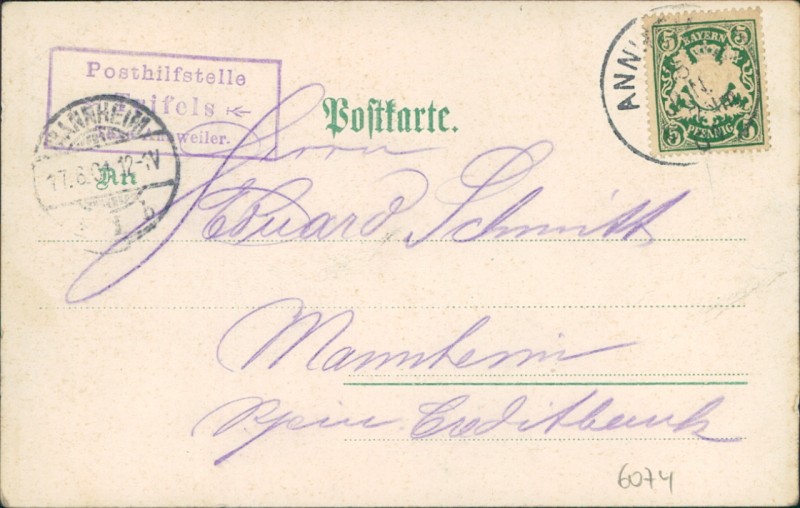 Posthilfstelle
Trifels
weiler.
MANNHEIM
17.6.01.12-1V
ANN
5 BAYERN 5
5 PFENNIG 5
Postkarte.
An
Herrn
Eduard Schmitt
Mannheim
Creditbank
6074